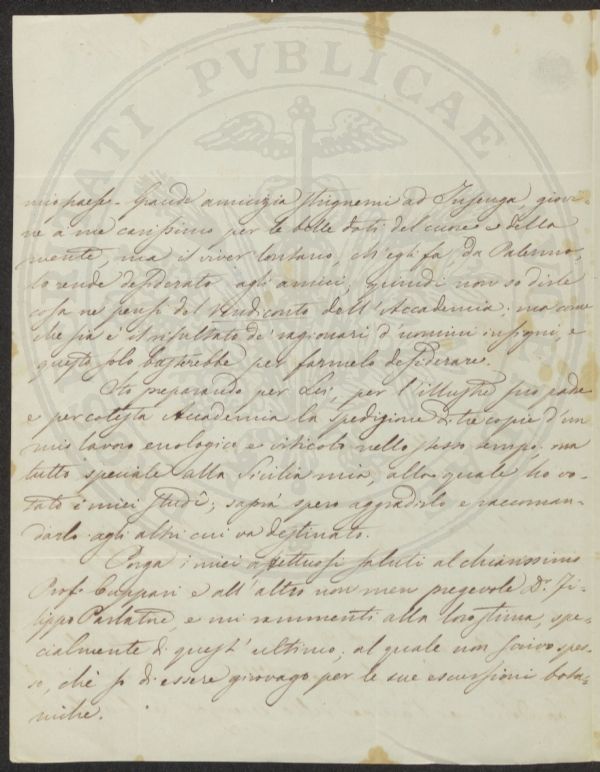 TATI PVBLICAE
mio paese - Grande amicizia strignemi ad Insenga, giova=
ne a me carissimo per le belle doti del cuore e della
mente, ma il viver lontano, ch'egli fa, da Palermo,
lo rende desiderato agli amici; quindi non so dirle
cosa ne pensi del Rendiconto dell'Accademia: ma come
che sia è il risultato de' ragionari d'uomini insigni, e
questo solo basterebbe per farmelo desiderare.
Sto preparando per Lei, per l'illustre suo padre
e per cotesta Accademia la spedizione di tre copie d'un
mio lavoro enologico e viticolo nello stesso tempo, ma
tutto speciale alla Sicilia mia, alla quale ho vo=
tato i miei studî; saprà spero aggradirlo e raccoman=
darlo agli altri cui va destinato.
Porga i miei affettuosi saluti al chiarissimo
Prof. Cuppari e all'altro non men pregevole Dr. Fi=
lippo Parlatore, e mi rammenti alla loro stima, spe=
cialmente di quest'ultimo, al quale non scrivo spes=
so, chè so di essere girovago per le sue escursioni bota=
niche.